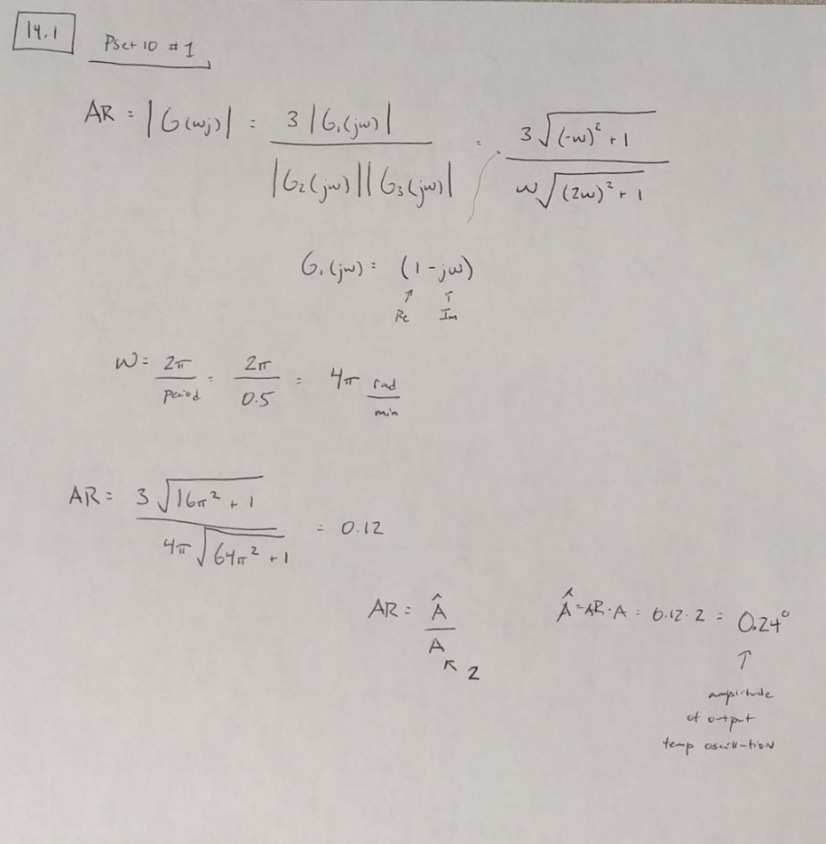 14.1
Pset 10 #1
AR = |G(wj)| = 3 |G₁(jw)| / |G₂(jw)||G₃(jw)| = 3√((-w)² + 1) / w√((2w)² + 1)
G₁(jw) = (1 - jw)
↑ ↑
Re Im
w = 2π / period = 2π / 0.5 = 4π rad / min
AR = 3√(16π² + 1) / 4π√(64π² + 1) = 0.12
AR = Â / A Â = AR · A = 0.12 · 2 = 0.24°
↖ 2 ↑
amplitude
of output
temp oscillation